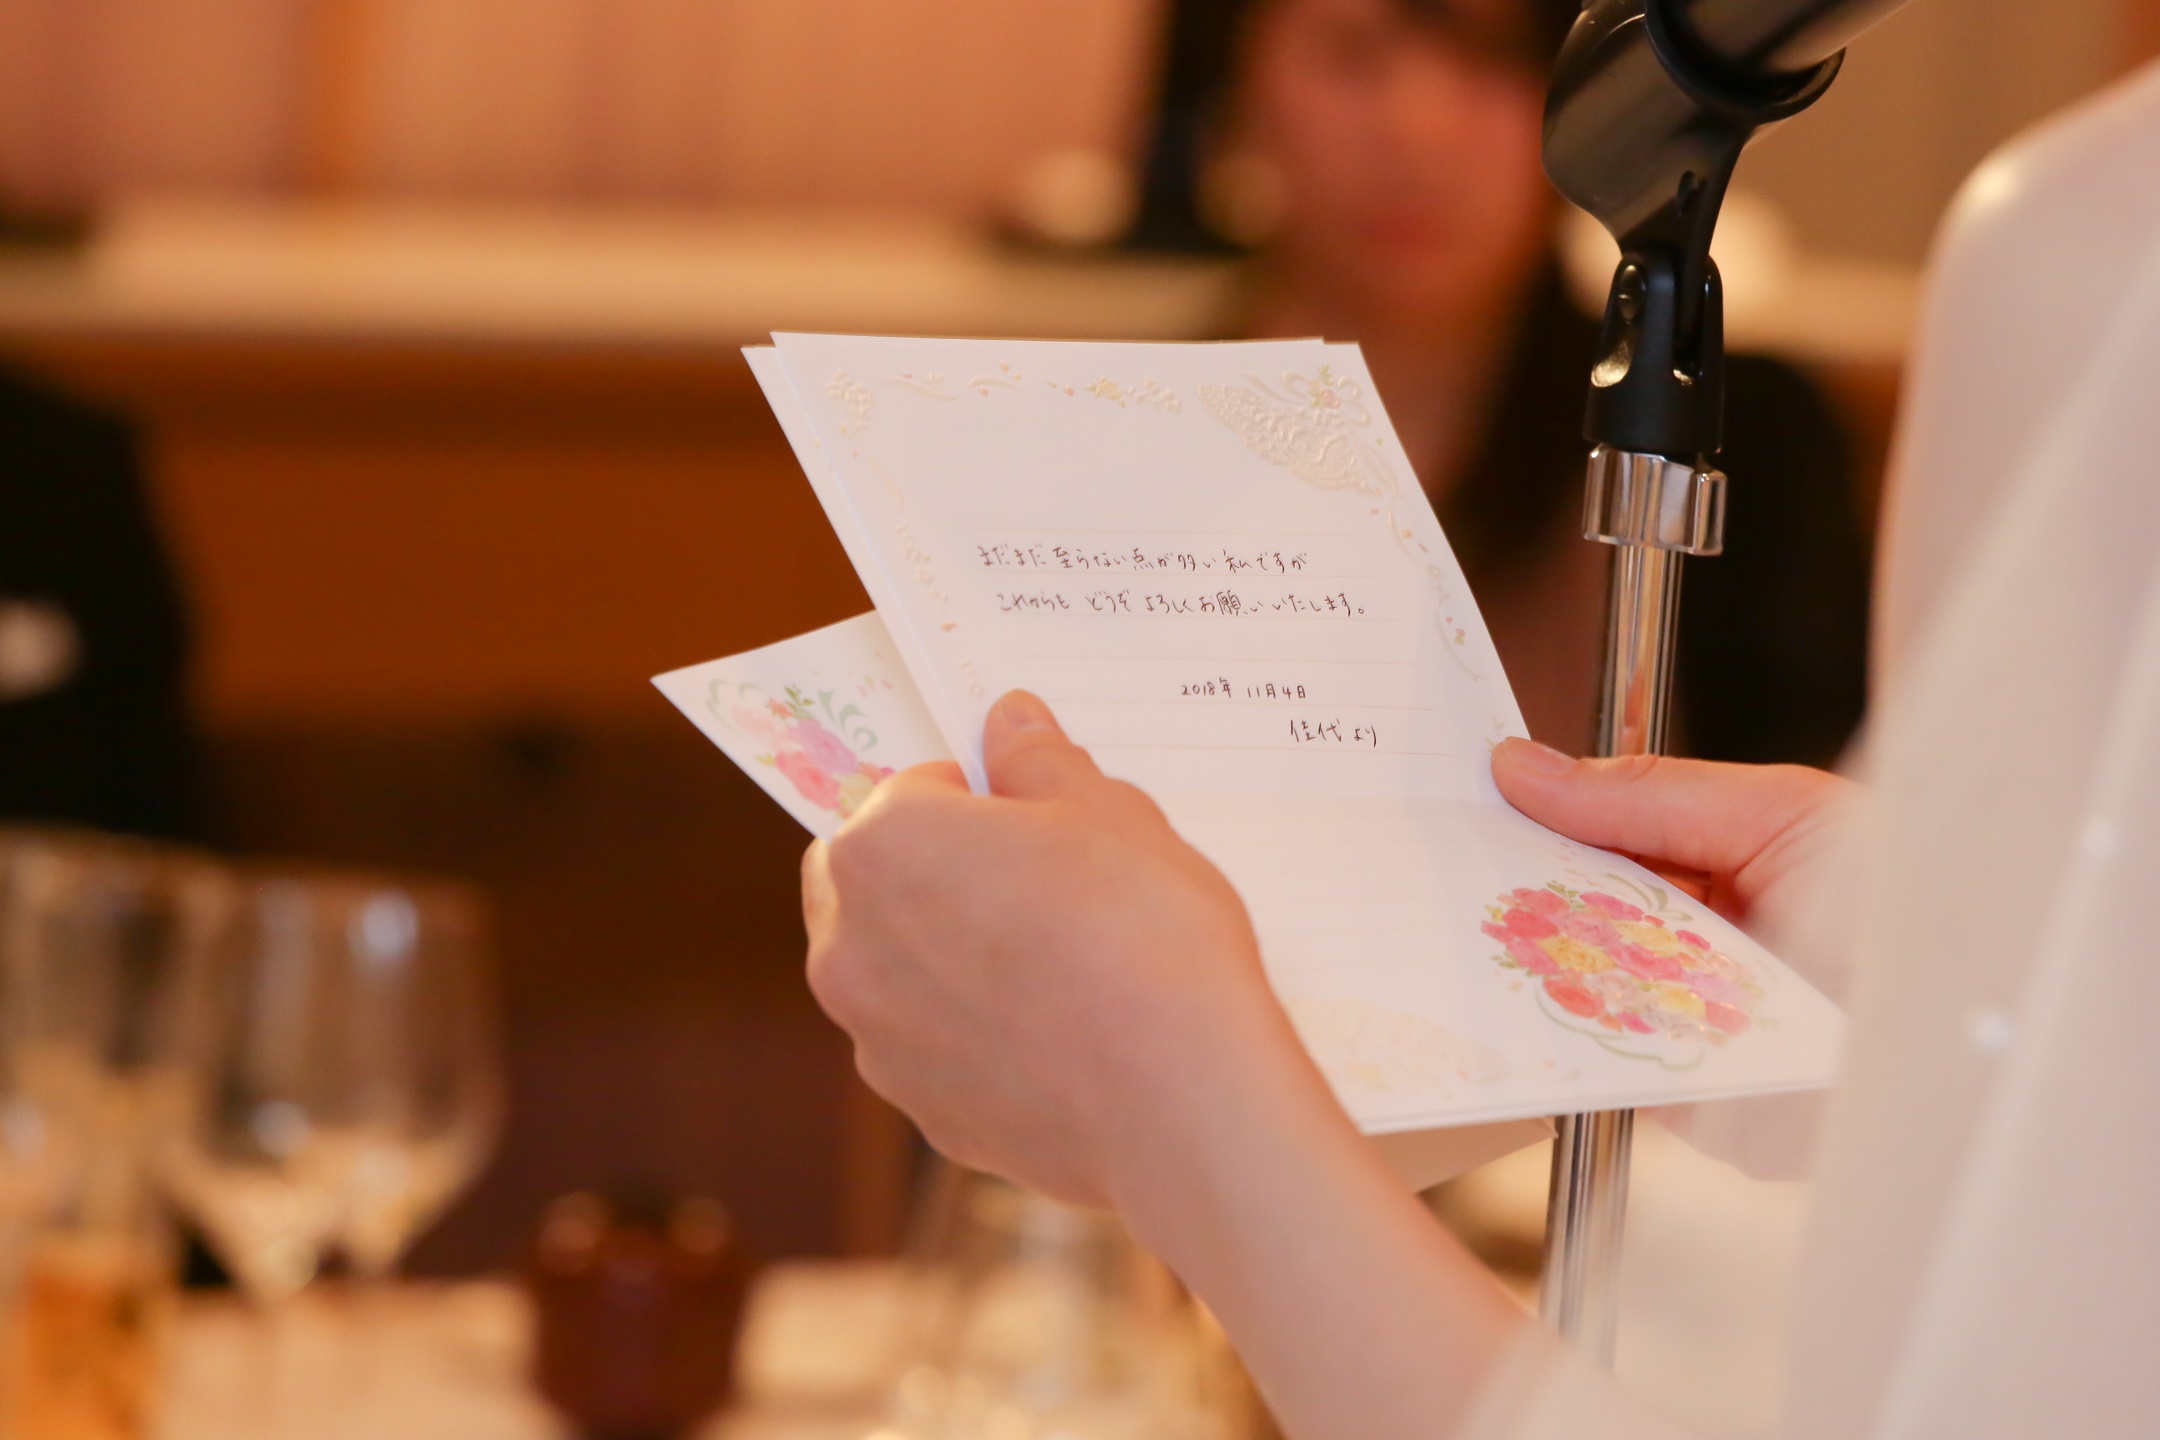 まだまだ至らない点が多い私ですが
これからも どうぞ よろしくお願いいたします。
2018年 11月4日
佳代より